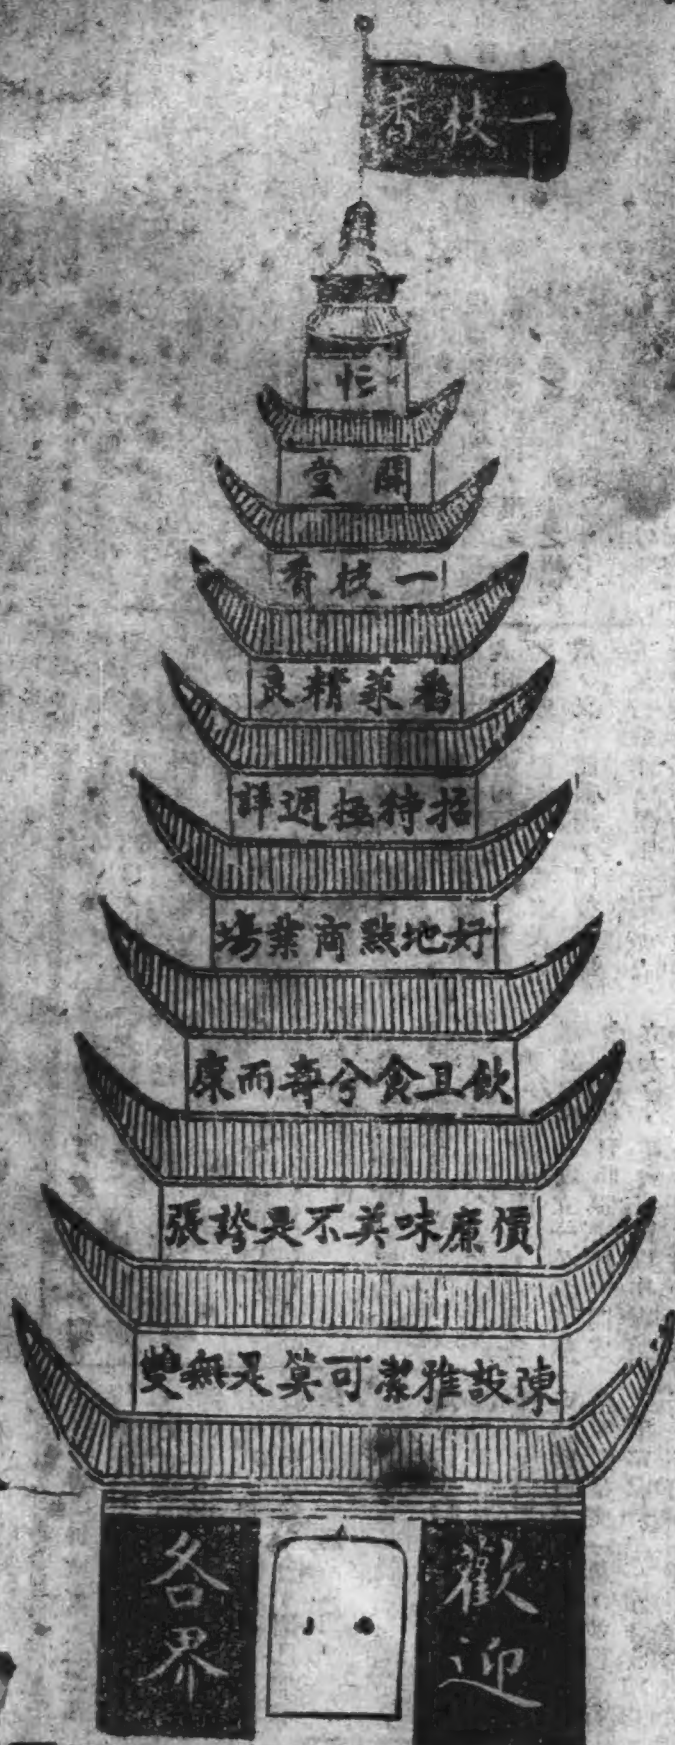 一枝香
忙
堂
一枝香
番菜精良
招待極週詳
好地點商業塲
飲且食兮壽而康
價廉味美不是誇張
陳設雅潔可算是無雙
歡迎
各界